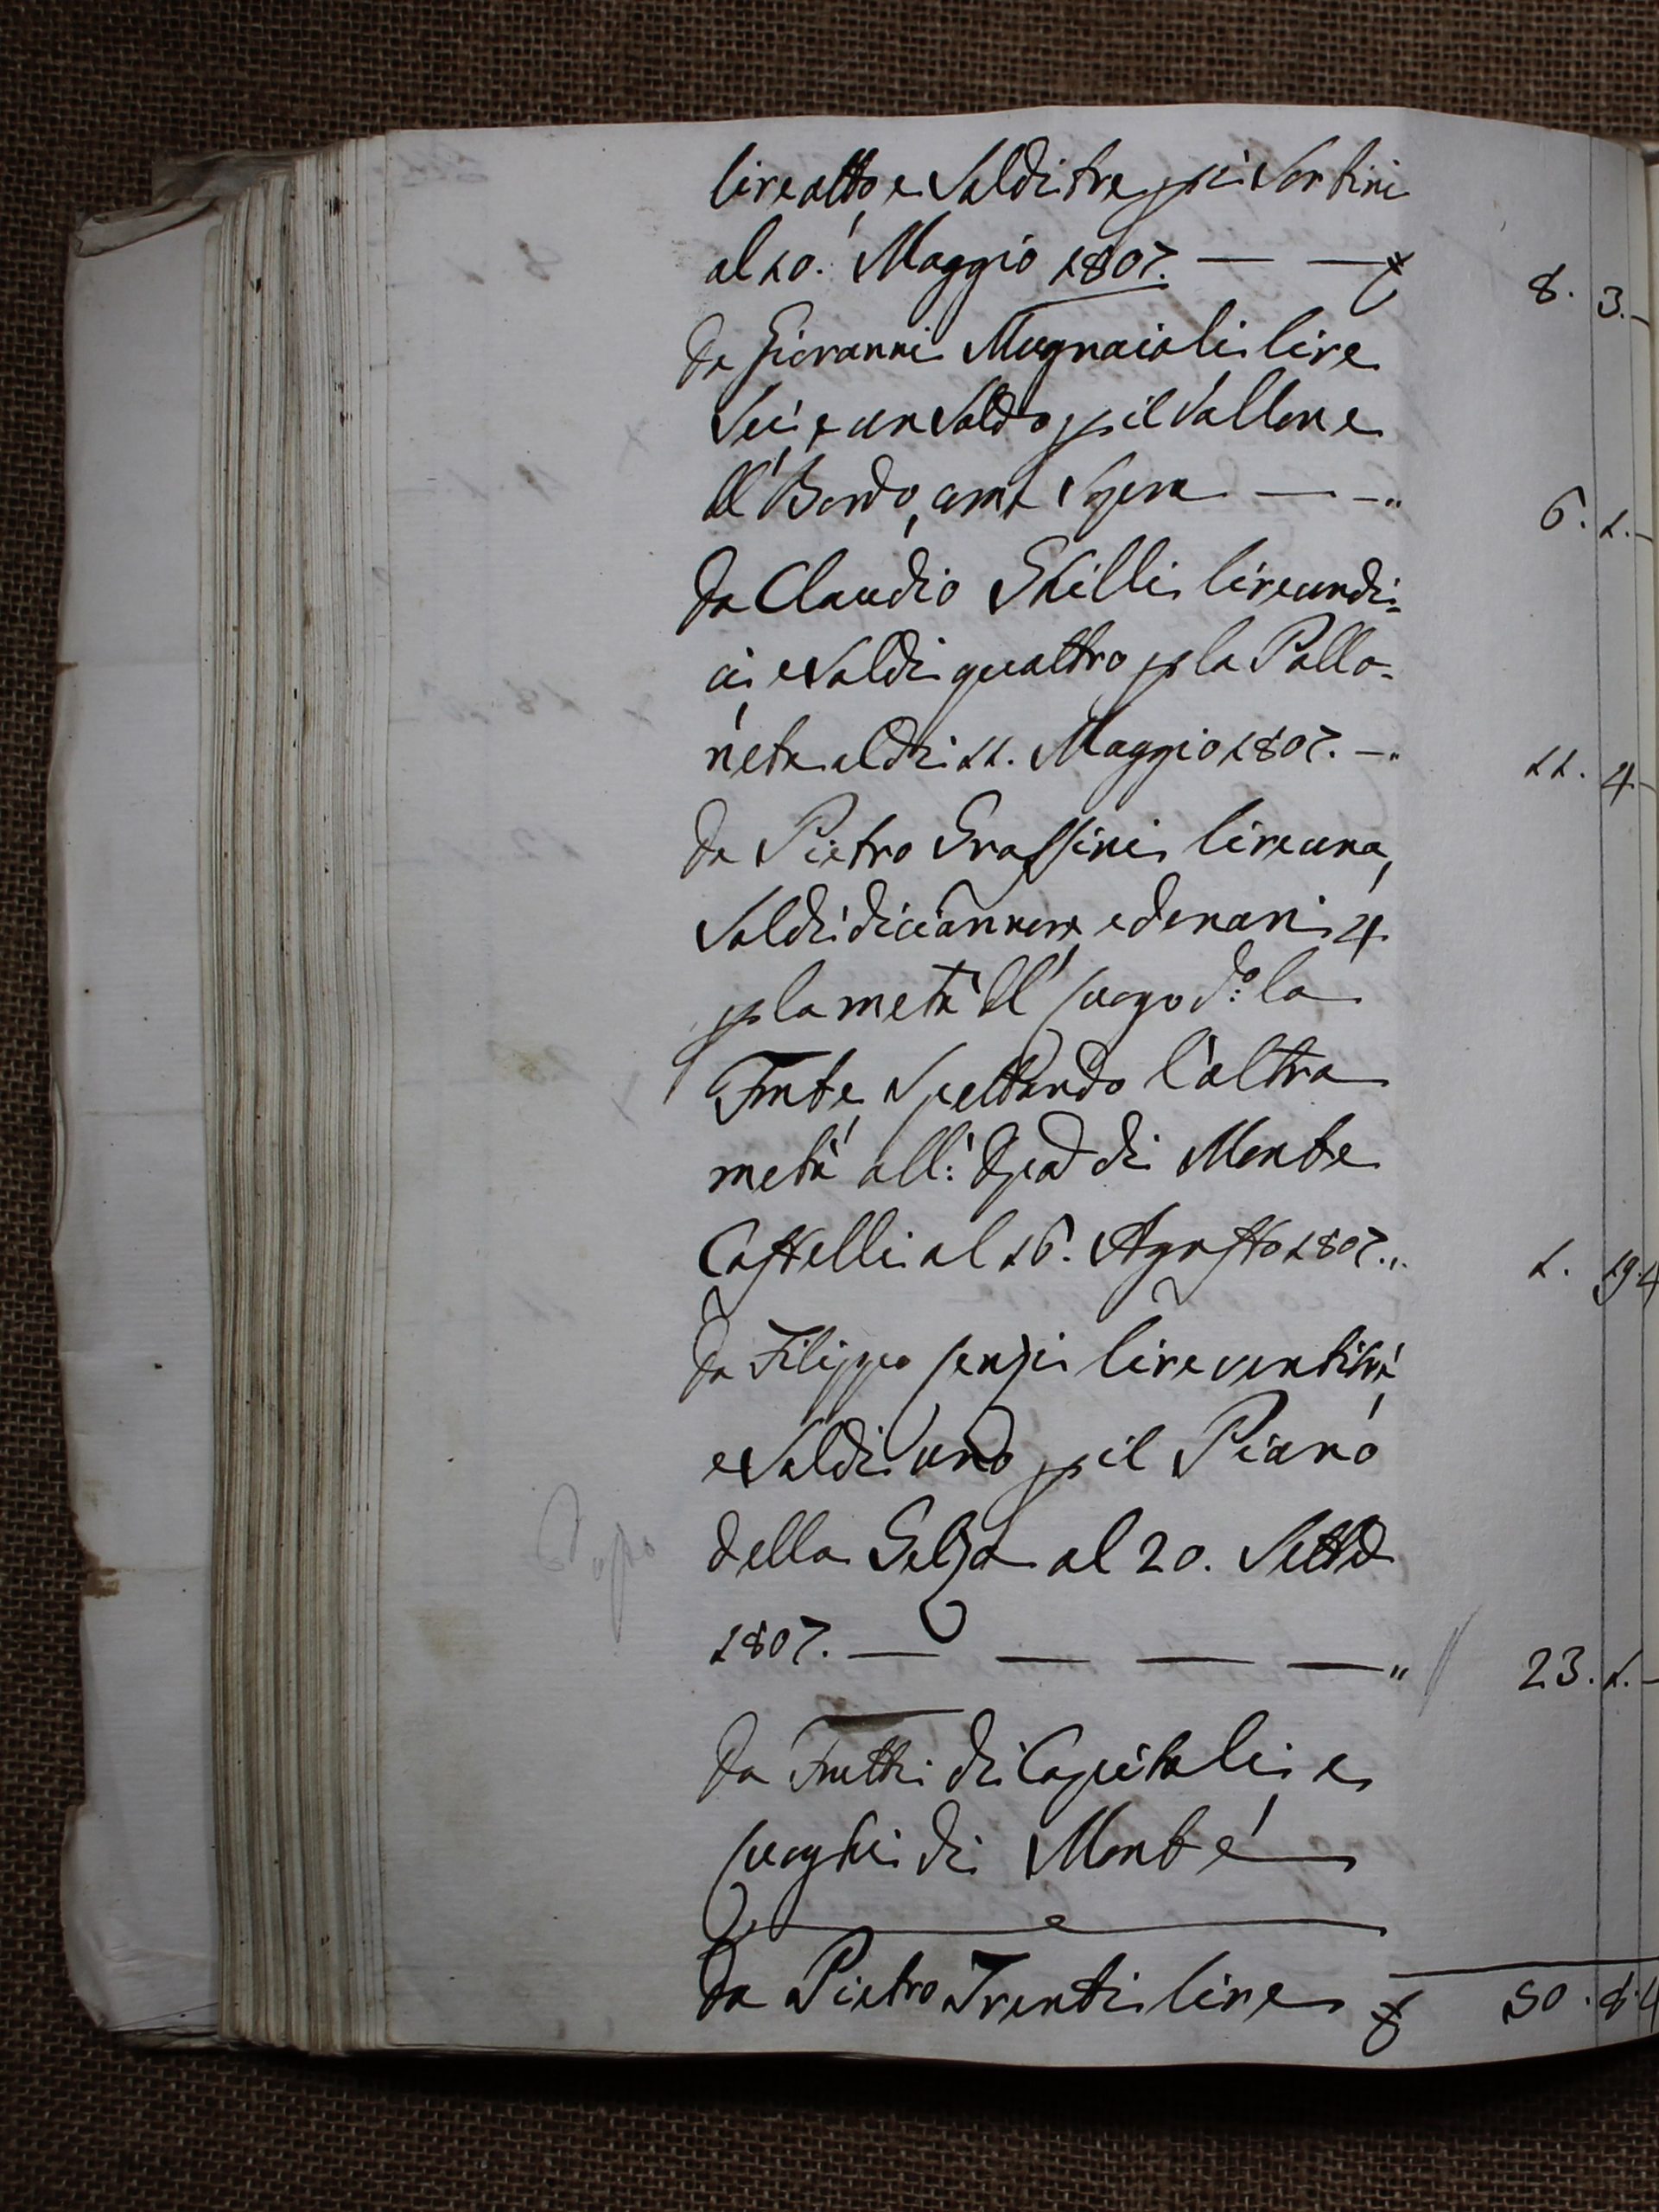 lire otto, e Soldi tre p i Sortini
al 10. Maggio 1807. — — £ 8. 3. -
Da Giovanni Mugnaioli lire
Sei, e un Soldo p il Vallone
dl Bordo, come Sopra — — „ 6. 1. -
Da Claudio Skilli lire undi=
ci, e Soldi quattro p la Pallo=
neta al dì 11. Maggio 1807. — „ 11. 4 -
Da Pietro Grassini lire una,
Soldi diciannove, e denari 4
p la metà dl luogo d.º la
Fonte, Spettando l'altra
metà all: di Monte
Castelli al 16. Agosto 1807. „ 1. 19. 4
Da Filippo Cenzi lire ventitrè,
e Soldi uno p il Piano
della Selza al 20. Sett
1807. — — — — „ 23. 1. -
Da Frutti di Capitali, e
luoghi di Monte
Da Pietro Trenti lire £ 50. 8. 4